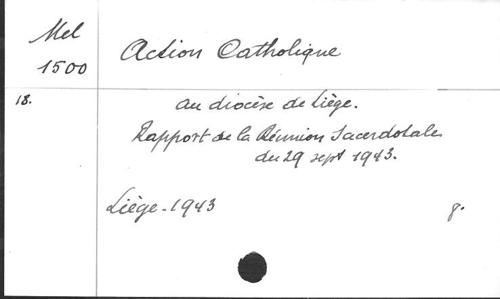 Mel
1500
Action Catholique
18.
au diocèse de Liège.
Rapport de la Réunion Sacerdotale
du 29 sept 1943.
Liège - 1943
8.